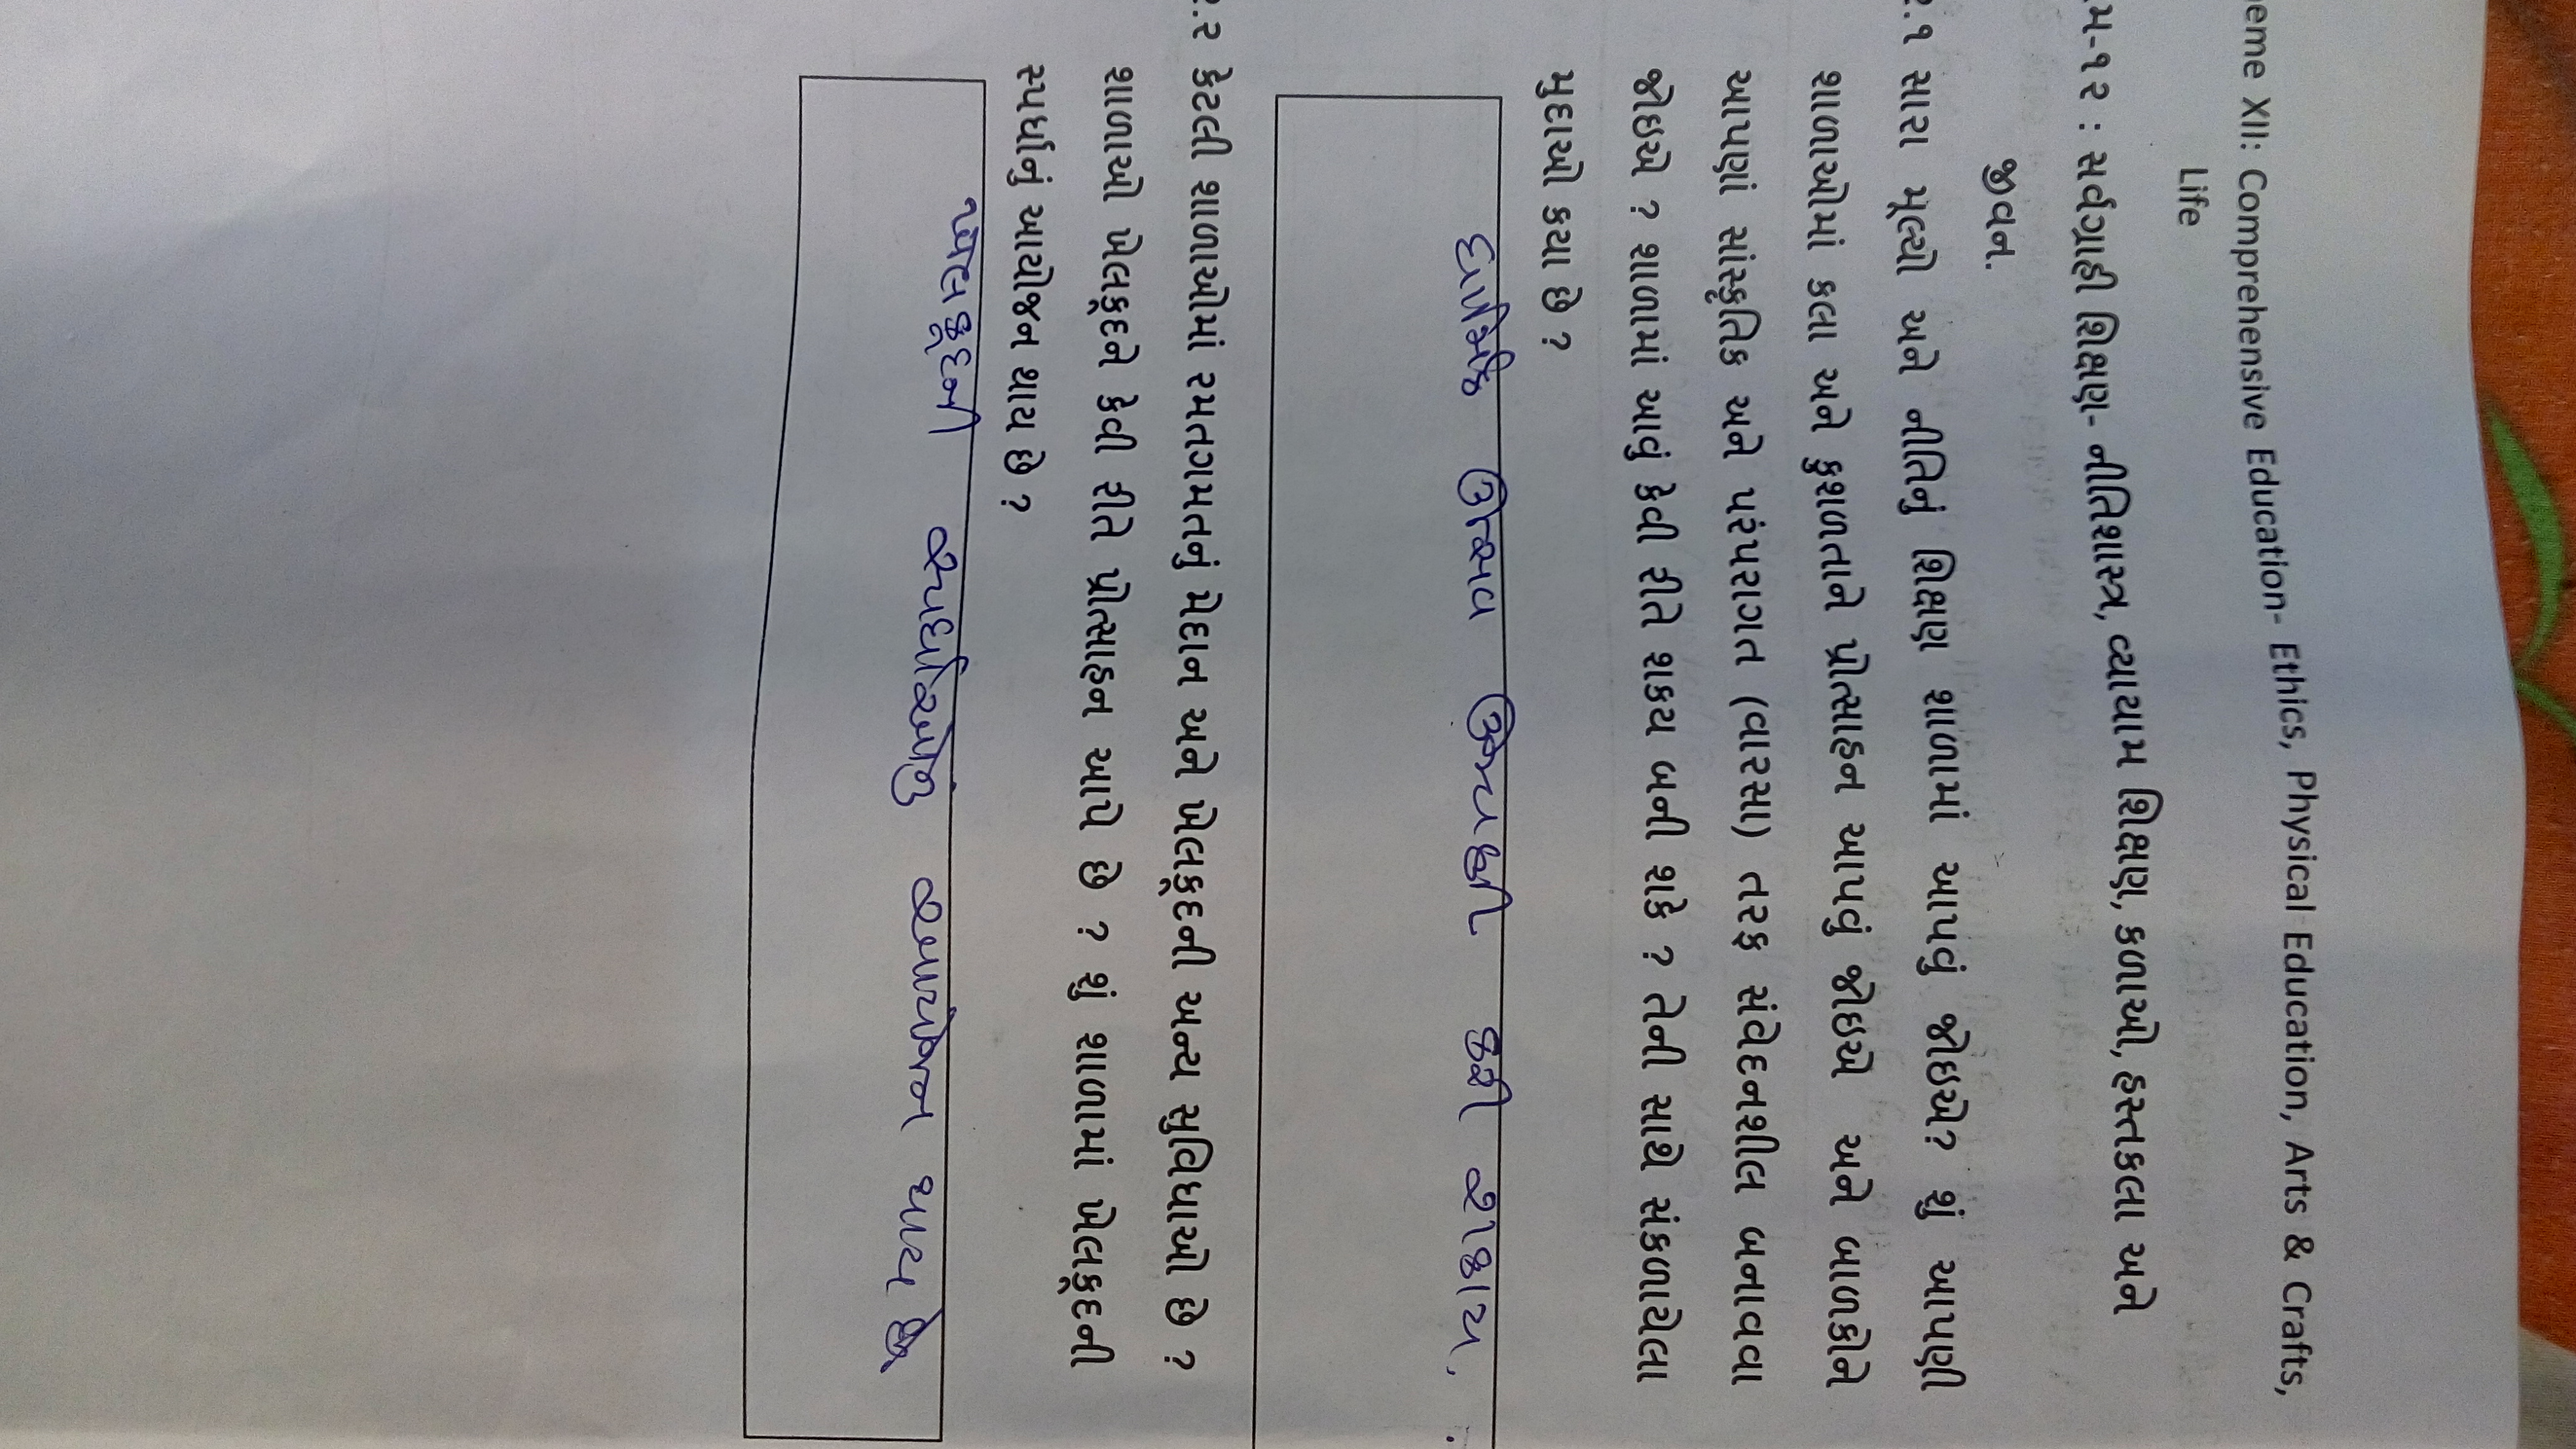 eme XII: Comprehensive Education- Ethics, Physical Education, Arts & Crafts,
Life
મ-૧૨ : સર્વગ્રાહી શિક્ષણ- નીતિશાસ્ત્ર, વ્યાયામ શિક્ષણ, કળાઓ, હસ્તકલા અને
જીવન.
૨.૧ સારા મૂલ્યો અને નીતિનું શિક્ષણ શાળામાં આપવું જોઇએ? શું આપણી
શાળાઓમાં કલા અને કુશળતાને પ્રોત્સાહન આપવું જોઇએ અને બાળકોને
આપણાં સાંસ્કૃતિક અને પરંપરાગત (વારસા) તરફ સંવેદનશીલ બનાવવા
જોઇએ ? શાળામાં આવું કેવી રીતે શકય બની શકે ? તેની સાથે સંકળાયેલા
મુદાઓ કયા છે ?
ધાર્મિક ઉત્સવ ઉજવણી કરી શકાય.
૨.૨ કેટલી શાળાઓમાં રમતગમતનું મેદાન અને ખેલકુદની અન્ય સુવિધાઓ છે ?
શાળાઓ ખેલકુદને કેવી રીતે પ્રોત્સાહન આપે છે ? શું શાળામાં ખેલકુદની
સ્પર્ધાનું આયોજન થાય છે ?
ખેલકૂદની સ્પર્ધાઓનુ આયોજન થાય છે